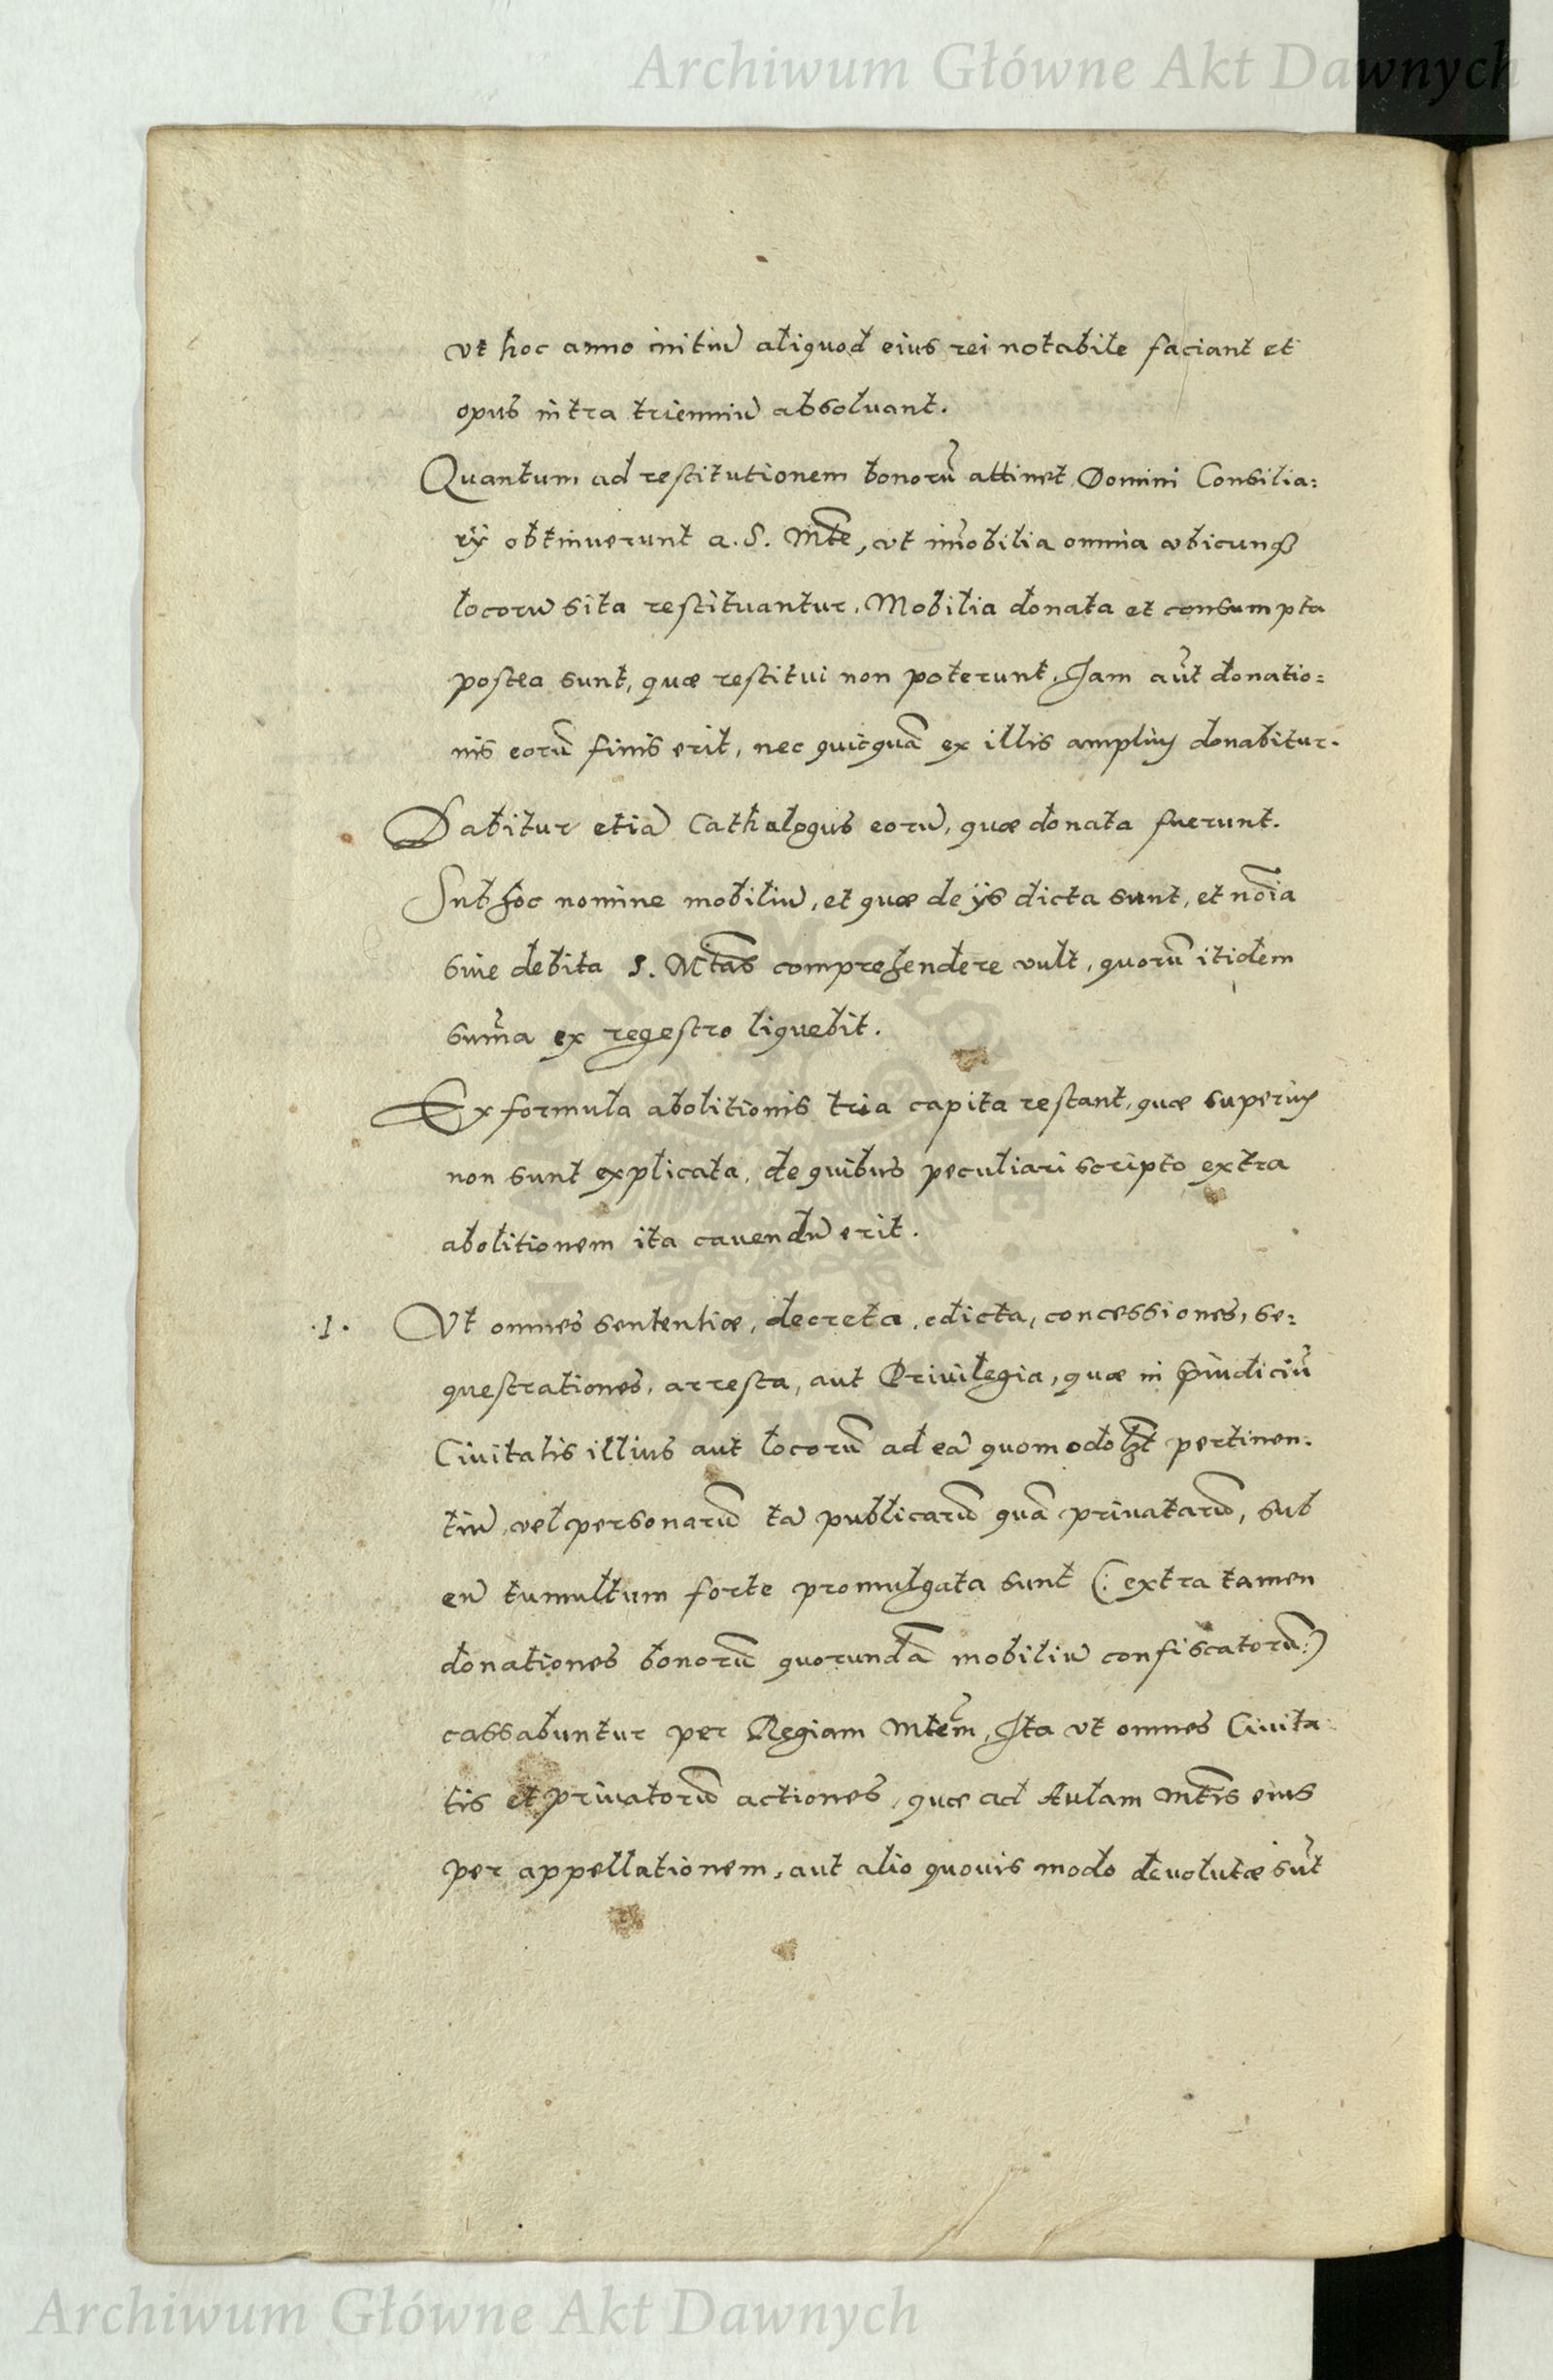 Archiwum Główne Akt Dawnych
vt hoc anno initiũ aliquod eius rei notabile faciant et
opus intra trienniũ absoluant.
Quantum ad restitutionem bonorũ attinet Domini Consilia:
rÿ obtinuerunt a. S. Mte, vt im̃obilia omnia vbicunqꝫ
locorũ sita restituantur. Mobilia donata et consumpta
postea sunt, quæ restitui non poterunt, Jam aũt donatio:
nis eorũ finis erit, nec quicquã ex illis ampliꝰ donabitur.
Dabitur etiã Cathalogus eorũ, quæ donata fuerunt.
Sub hoc nomine mobiliũ, et quæ de ÿs dicta sunt, et nõia
siue debita S. Mtas comprehendere vult, quorũ itidem
sum̃a ex regestro liquebit.
Ex formula abolitionis tria capita restant, quæ superiꝰ
non sunt explicata, de quibus peculiari scripto extra
abolitionem ita cauendũ erit.
.1. Vt omnes sententiæ, decreta, edicta, concessiones, se:
questrationes, arresta, aut Priuilegia, quæ in p̃iudiciũ
Ciuitatis illius aut locorũ ad eã quomodolꝫt pertinen:
tiũ, vel personarũ tã publicarũ quã priuatarũ, sub
eũ tumultum forte promulgata sunt (: extra tamen
donationes bonorũ quorundã mobiliũ confiscatorũ :)
cassabuntur per Regiam Mtẽm, Ita vt omnes Ciuita:
tis et priuatorũ actiones, quæ ad Aulam Mtis eius
per appellationem, aut alio quouis modo deuolutæ sũt
Archiwum Główne Akt Dawnych